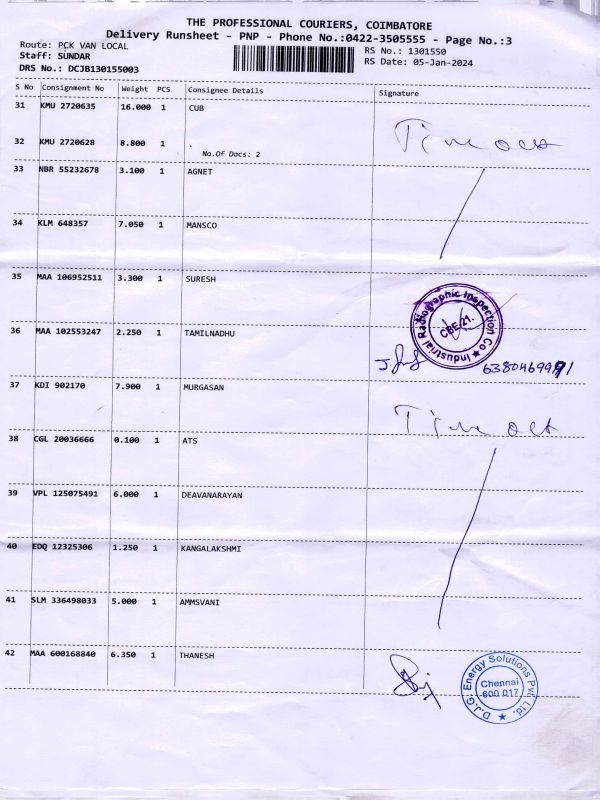 THE PROFESSIONAL COURIERS, COIMBATORE
Delivery Runsheet - PNP - Phone No.:0422-3505555 - Page No.:3
Route: PCK VAN LOCAL
RS No.: 1301550
Staff: SUNDAR
RS Date: 05-Jan-2024
DRS No.: DCJB130155003
S No Consignment No Weight PCS Consignee Details Signature
31 KMU 2720635 16.000 1 CUB
Time out
32 KMU 2720628 8.800 1 .
No.Of Docs: 2
33 NBR 55232678 3.100 1 AGNET
34 KLM 648357 7.050 1 MANSCO
35 MAA 106952511 3.300 1 SURESH
Industrial Radiographic Inspection Co ★
CBE-21.
36 MAA 102553247 2.250 1 TAMILNADHU
6380469991
37 KDI 902170 7.900 1 MURGASAN
Time out
38 CGL 20036666 0.100 1 ATS
39 VPL 125075491 6.000 1 DEAVANARAYAN
40 EDQ 12325306 1.250 1 KANGALAKSHMI
41 SLM 336498033 5.000 1 AMMSVANI
42 MAA 600168840 6.350 1 THANESH
D.J.G. Energy Solutions Pvt. Ltd. ★
Chennai
600 017